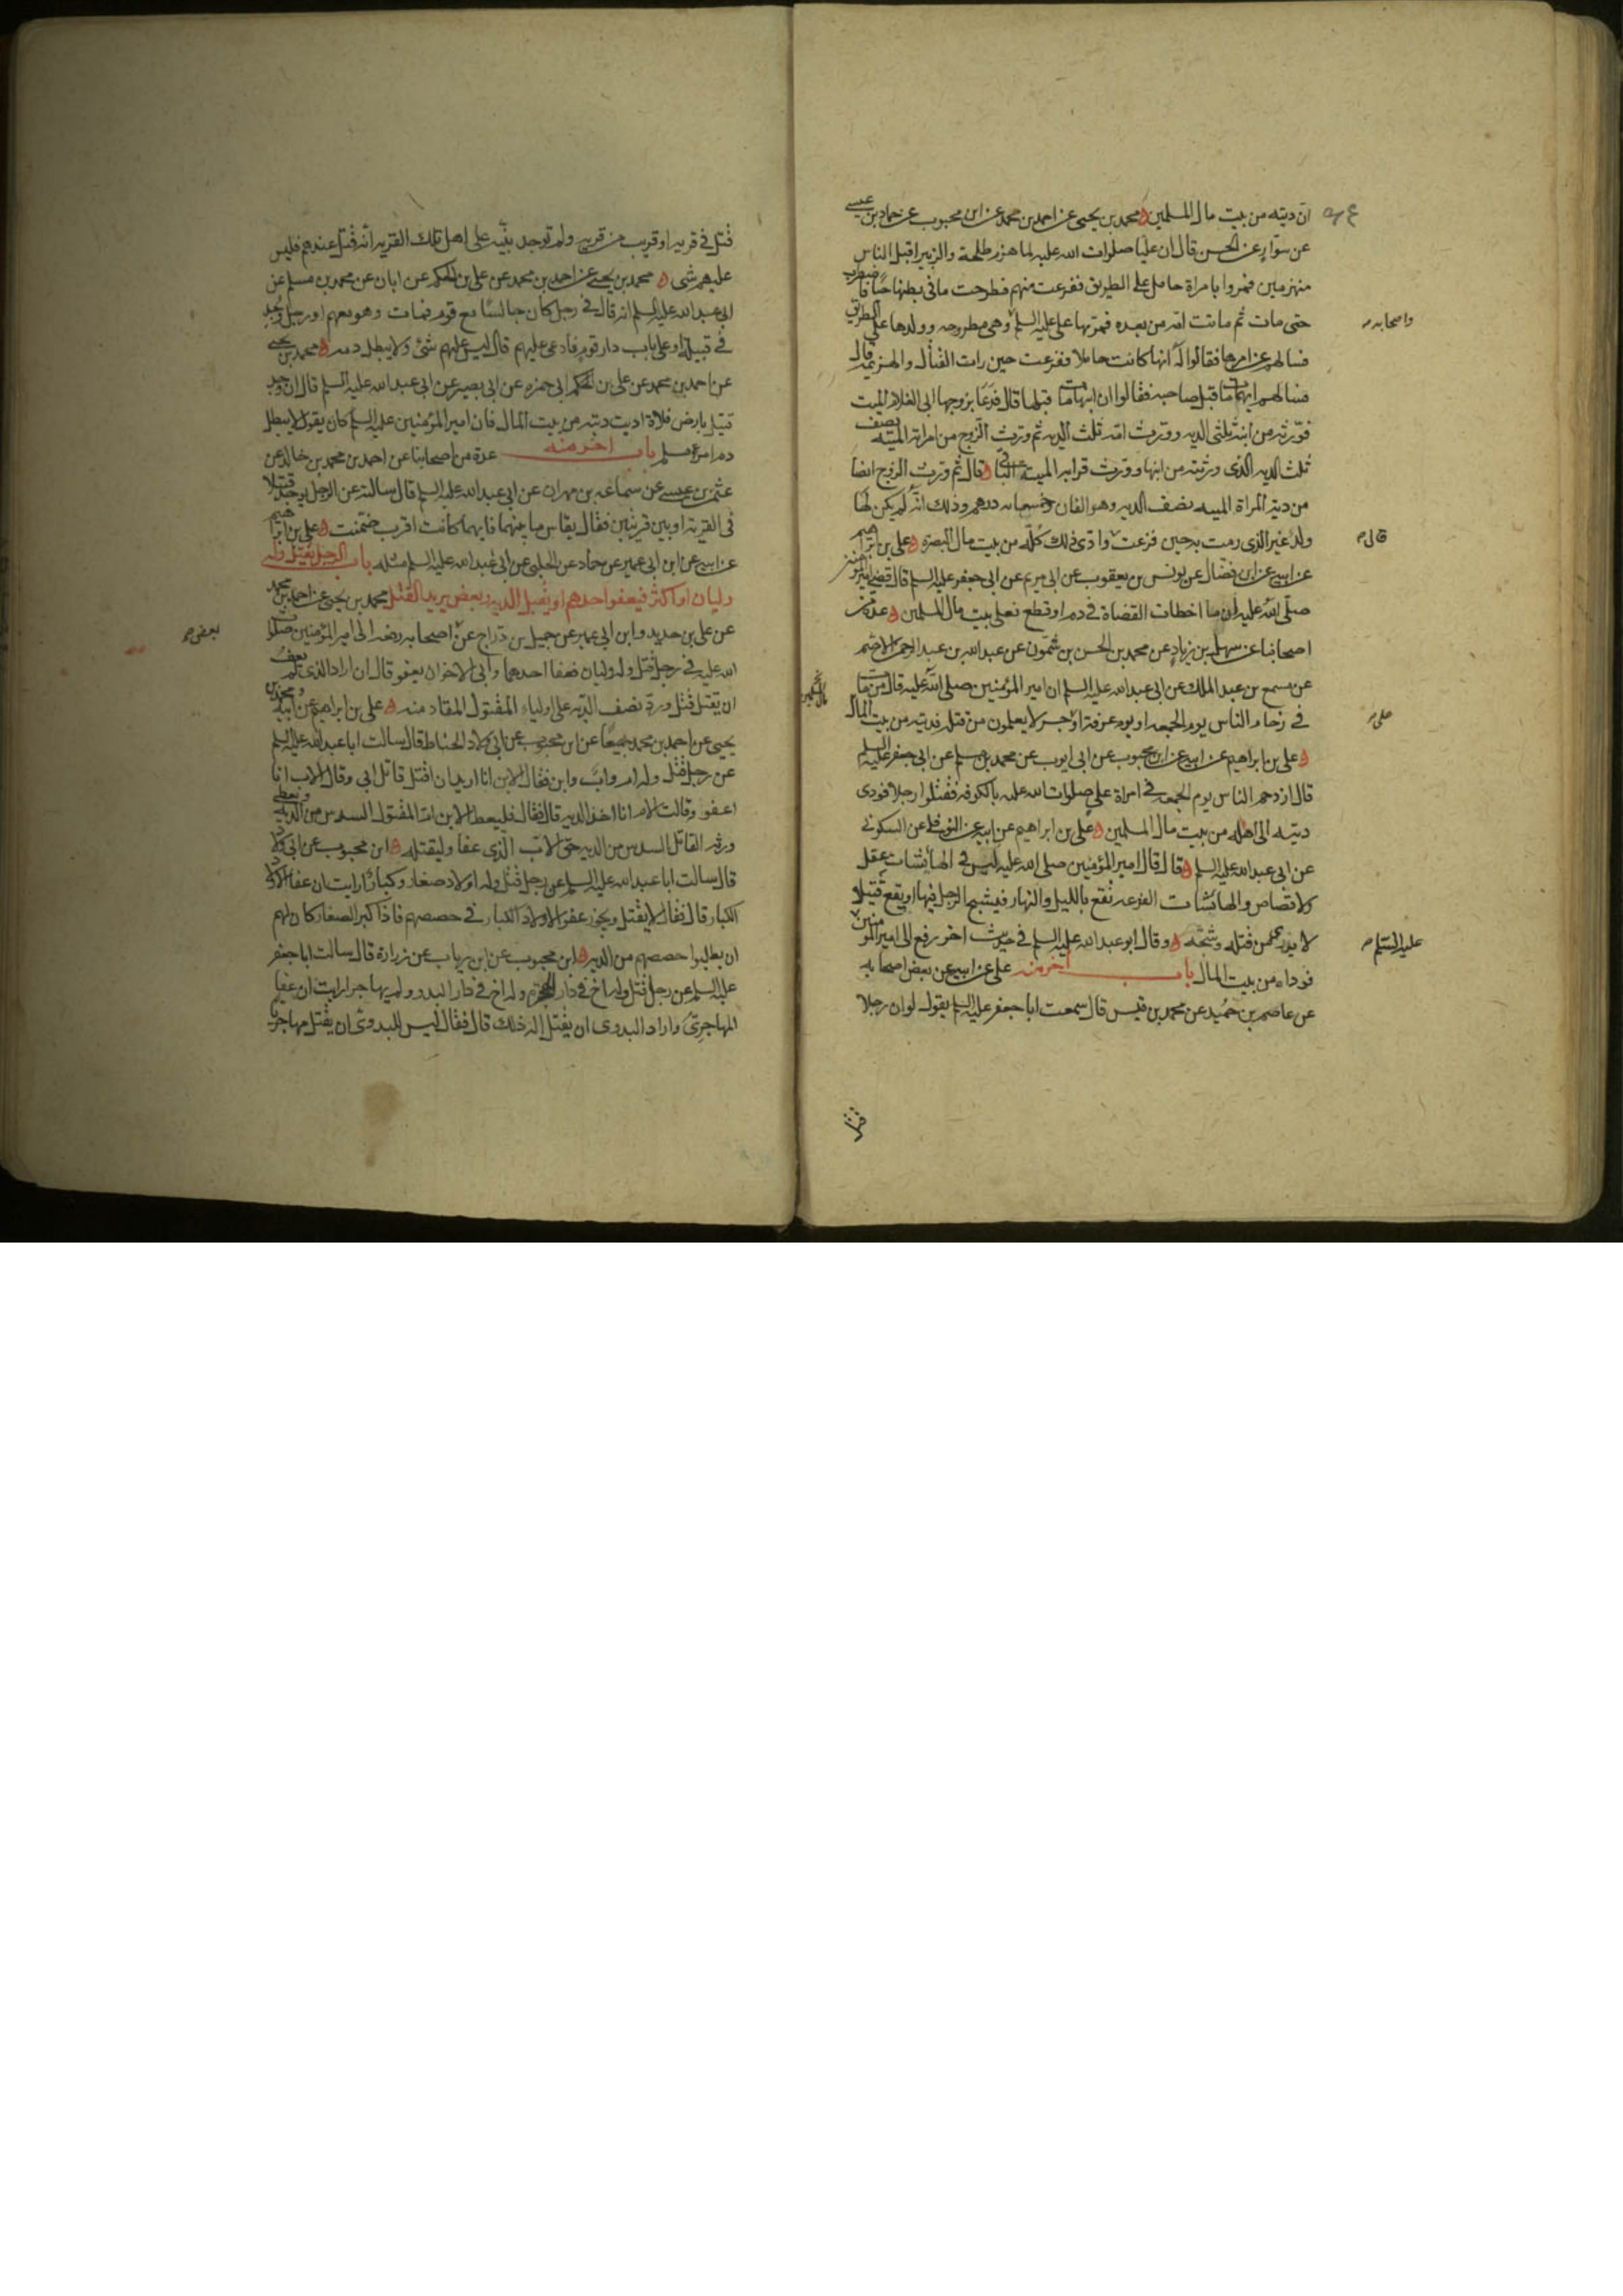 ان ديته من بيت مال المسلمين محمد بن يحيى عن احمد بن محمد عن ابن محبوب عن حماد بن عيسى
عن سوار عن الحسن قال ان عليا صلوات الله عليه لما هزم طلحة والزبير اقبل الناس
منهزمين فمروا بامراة حامل على الطريق ففزعت منهم فطرحت ما في بطنها حيا فاضطرب
حتى مات ثم ماتت امه من بعده فمر بها على عليه السلم وهى مطروحه وولدها على الطريق
واصحابه
فسالهم عن امرها فقالوا له انها كانت حاملا ففزعت حين رات القتال والهزيمة قال
فسالهم ايهما مات قبل صاحبه فقالوا ان ابنها مات قبلها قال فدعا بزوجها ابى الغلام الميت
فورثه من ابنه ثلثى الديه وورث امه ثلث الديه ثم ورث الزوج من امراته الميته نصف
ثلث الديه الذى ورثته من ابنها وورث قرابه الميته الباقى قال ثم ورث الزوج ايضا
من دية المراة الميته نصف الديه وهو الفان وخمسمائه درهم وذلك انه لم يكن لها
ولد غير الذى رمت به حين فزعت وادى ذلك كله من بيت مال البصره على بن ابراهيم
قال
عن ابيه عن ابن فضال عن يونس بن يعقوب عن ابى مريم عن ابى جعفر عليه السلم قال قضى امير المومنين
صلى الله عليه ان ما اخطات القضاة فى دم او قطع فعلى بيت مال المسلمين عدة من
اصحابنا عن سهل بن زياد عن محمد بن الحسن بن شمون عن عبد الله بن عبد الرحمن الاصم
عن مسمع بن عبد الملك عن ابى عبد الله عليه السلم ان امير المؤمنين صلى الله عليه قال من مات
فى زحام الناس يوم الجمعه او يوم عرفة او جسر لا يعلمون من قتله فديته من بيت المال
على
على بن ابراهيم عن ابيه عن ابن محبوب عن ابى ايوب عن محمد بن مسلم عن ابى جعفر عليه السلم
قال ازدحم الناس يوم الجمعه فى امرة على صلوات الله عليه بالكوفه فقتلوا رجلا فودى
ديته الى اهله من بيت مال المسلمين على بن ابراهيم عن ابيه عن النوفلى عن السكونى
عن ابى عبد الله عليه السلم قال قال امير المؤمنين صلى الله عليه ليس فى الهائشات عقل
ولا قصاص والهائشات الفزعه تقع بالليل والنهار فيشج الرجل فيها او يقع قتيلا
لا يدرى من قتله وشجه وقال ابو عبد الله عليه السلم فى حديث اخر رفع الى امير المومنين
عليه السلم
فوداه من بيت المال باب اخر منه على عن ابيه عن بعض اصحابه
عن عاصم بن حميد عن محمد بن قيس قال سمعت ابا جعفر عليه السلم يقول لو ان رجلا
قتل
قتل فى قرية او قريب من قرية ولم توجد بينه على اهل تلك القريه انه قتل عندهم فليس
عليهم شى محمد بن يحيى عن احمد بن محمد عن على بن الحكم عن ابان عن محمد بن مسلم عن
ابى عبد الله عليه السلم انه قال فى رجل كان جالسا مع قوم فمات وهو معهم او رجل وجد
فى قبيلة او على باب دار قوم فادعى عليهم قال ليس عليهم شئ ولا يبطل دمه محمد بن يحيى
عن احمد بن محمد عن على بن ابى حمزه عن ابى بصير عن ابى عبد الله عليه السلم قال ان وجد
قتيل بارض فلاة اديت ديته من بيت المال فان امير المؤمنين عليه السلم كان يقول لا يبطل
دم امرئ مسلم باب اخر منه عدة من اصحابنا عن احمد بن محمد بن خالد عن
عثمن بن عيسى عن سماعه بن مهران عن ابى عبد الله عليه السلم قال سالته عن الرجل يوجد قتيلا
فى القرية او بين قريتين فقال يقاس ما بينهما فايهما كانت اقرب ضمنت على بن ابراهيم
عن ابيه عن ابن ابى عمير عن حماد عن الحلبى عن ابى عبد الله عليه السلم مثله باب الرجل يقتل وله
وليان او اكثر فيعفو احدهم او يقبل الديه وبعض يريد القتل محمد بن يحيى عن احمد بن محمد
عن على بن حديد وابن ابى عمير عن جميل بن دراج عن اصحابه رفعه الى امير المؤمنين صلوات
بعض
الله عليه فى رجل قتل وله وليان فعفا احدهما وابى الاخر ان يعفو قال ان اراد الذى لم يعف
ان يقتل قتل ورد نصف الديه على اولياء المقتول المقاد منه على بن ابراهيم عن ابيه ومحمد بن
يحيى عن احمد بن محمد جميعا عن ابن محبوب عن ابى ولاد الحناط قال سالت ابا عبد الله عليه السلم
عن رجل قتل وله ام واب وابن فقال الابن انا اريد ان اقتل قاتل ابى وقال الاب انا
اعفو وقالت الام انا اخذ الديه قال فقال فليعط الابن ام المقتول السدس من الديه ويعطى
ورثه القاتل السدس من الديه حق الاب الذى عفا وليقتله ابن محبوب عن ابى ولاد
قال سالت ابا عبد الله عليه السلم عن رجل قتل وله اولاد صغار وكبار ارايت ان عفا الاولاد
الكبار قال فقال لا يقتل ويجوز عفو الاولاد الكبار فى حصصهم فاذا كبر الصغار كان لهم
ان يطلبوا حصصهم من الديه ابن محبوب عن ابن رياب عن زرارة قال سالت ابا جعفر
عليه السلم عن رجل قتل وله اخ فى دار الهجرة وله اخ فى دار البدو ولم يهاجر ارايت ان عفا
المهاجرى واراد البدوى ان يقتل اله ذلك قال فقال ليس للبدوى ان يقتل مهاجريا